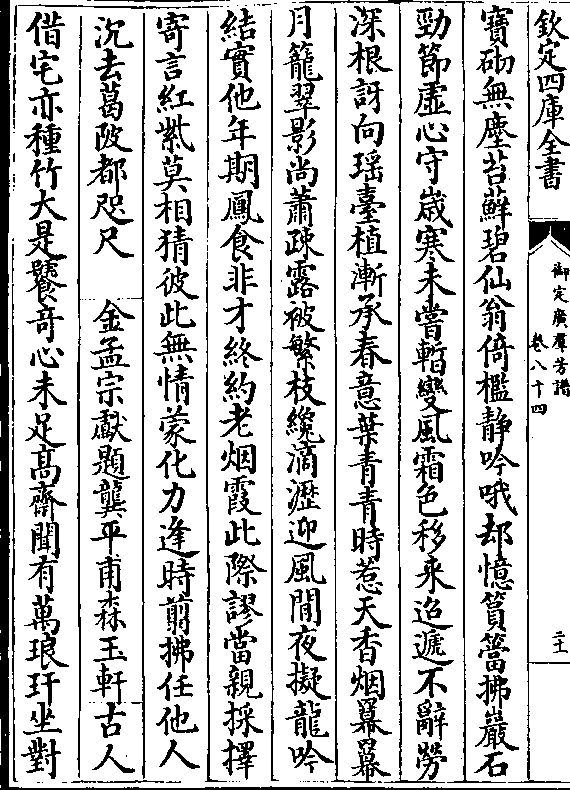 欽定四庫全書
御定廣羣芳譜
卷八十四
二十
寶砌無塵苔蘚碧仙翁倚檻静吟哦却憶篔簹拂巖石
勁節虛心守歲寒未嘗暫變風霜色移来迢遞不辭勞
深根訝向瑶臺植漸承春意葉青青時惹天香烟羃羃
月籠翠影尚蕭疎露裛繁枝纔滴瀝迎風閒夜擬龍吟
結實他年期鳳食非才終約老烟霞此際謬當親採擇
寄言紅紫莫相猜彼此無情蒙化力逢時翦拂任他人
沉去葛陂都咫尺　金孟宗獻題龔平甫森玉軒古人
借宅亦種竹大是饕竒心未足髙齋聞有萬琅玕坐對